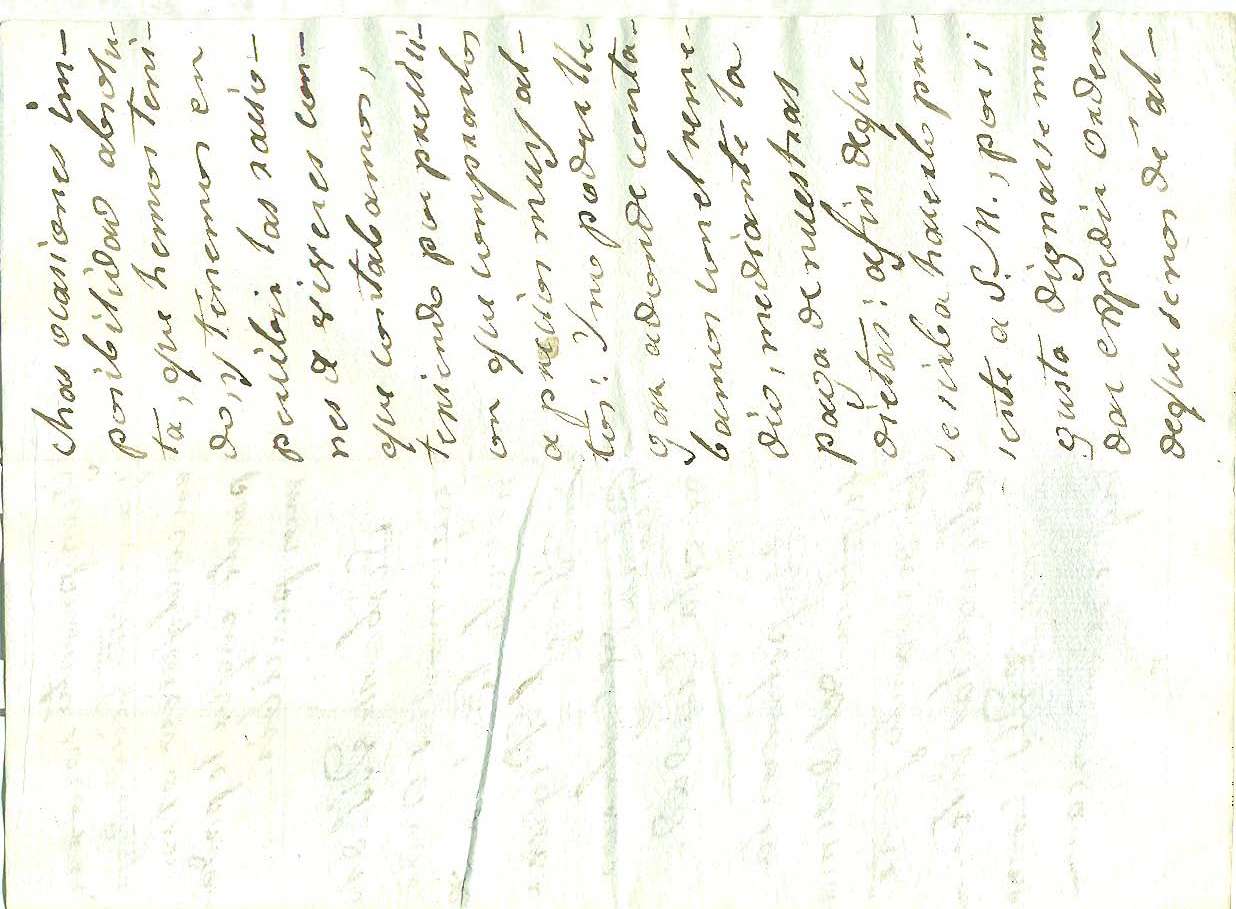 chas ocasiones im-
posibilidad absolu-
ta, que hemos teni-
do, y tenemos en
percibir las racio-
nes de viveres con
que contabamos,
teniendo por precisi-
on que comprarlos
a precios muy al-
tos: y no poder lle-
gar adonde conta-
bamos con el reme-
dio, mediante la
paga de nuestras
dietas: a fin de que
se sirba hacerlo pre-
sente a S. M., por si
gusta dignarse man
dar expedir orden
de que se nos dé al-